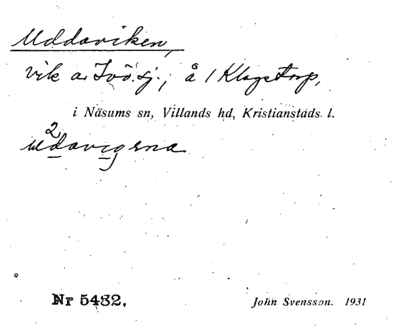 Uddaviken,
vik av Ivö sj., å 1 Klagstorp,
i Näsums sn, Villands hd, Kristianstads l.
2
udavigerna
Nr 5432.
John Svensson. 1931